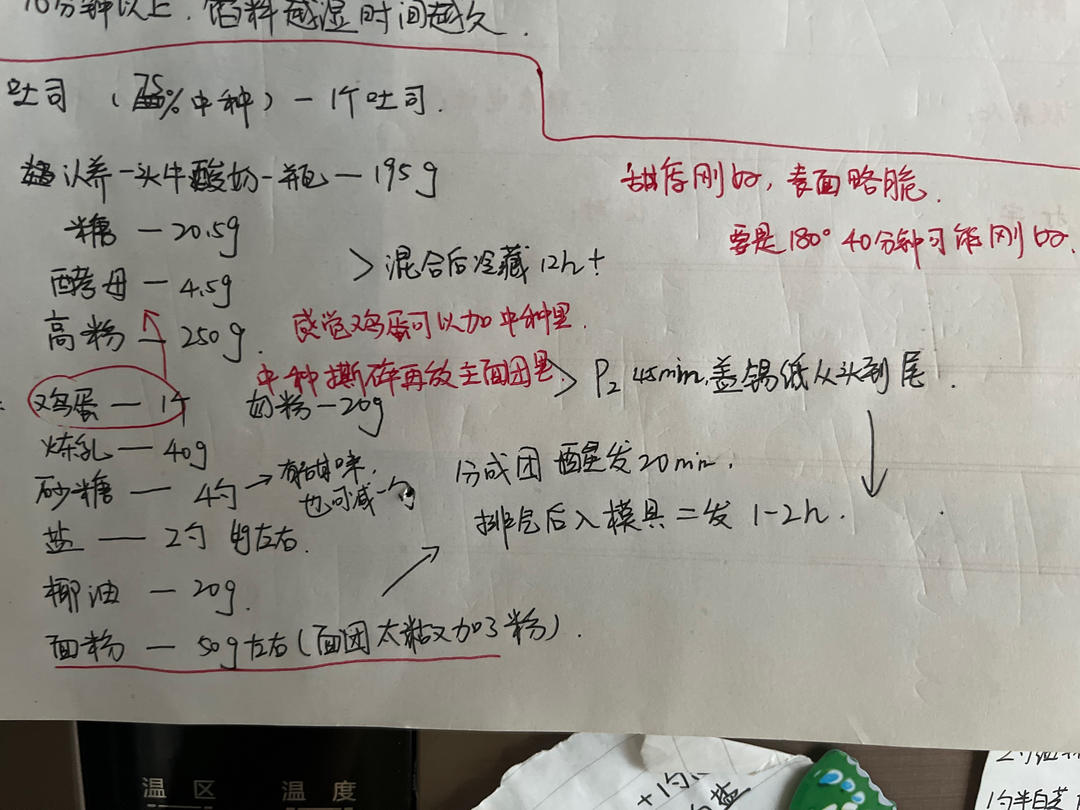 10分钟以上. 馅料越湿时间越久.
吐司 (75%中种) — 1个吐司.
认养一头牛酸奶一瓶 — 195g
糖 — 20.5g
酵母 — 4.5g
高粉 — 250g.
> 混合后冷藏 12h+
甜度刚好, 表面略脆.
要是180° 40分钟可能刚好.
感觉鸡蛋可以加中种里.
中种撕碎再放主面团里.
鸡蛋 — 1个
奶粉 — 20g
炼乳 — 40g
砂糖 — 4勺 → 有甜味,
也可减一勺
盐 — 2勺 左右.
椰油 — 20g.
面粉 — 50g左右 (面团太粘又加了粉).
> P2 45min, 盖锡纸从头到尾.
分成团 醒发20min.
排气后入模具二发 1-2h.
温区 温度
+1勺
盐